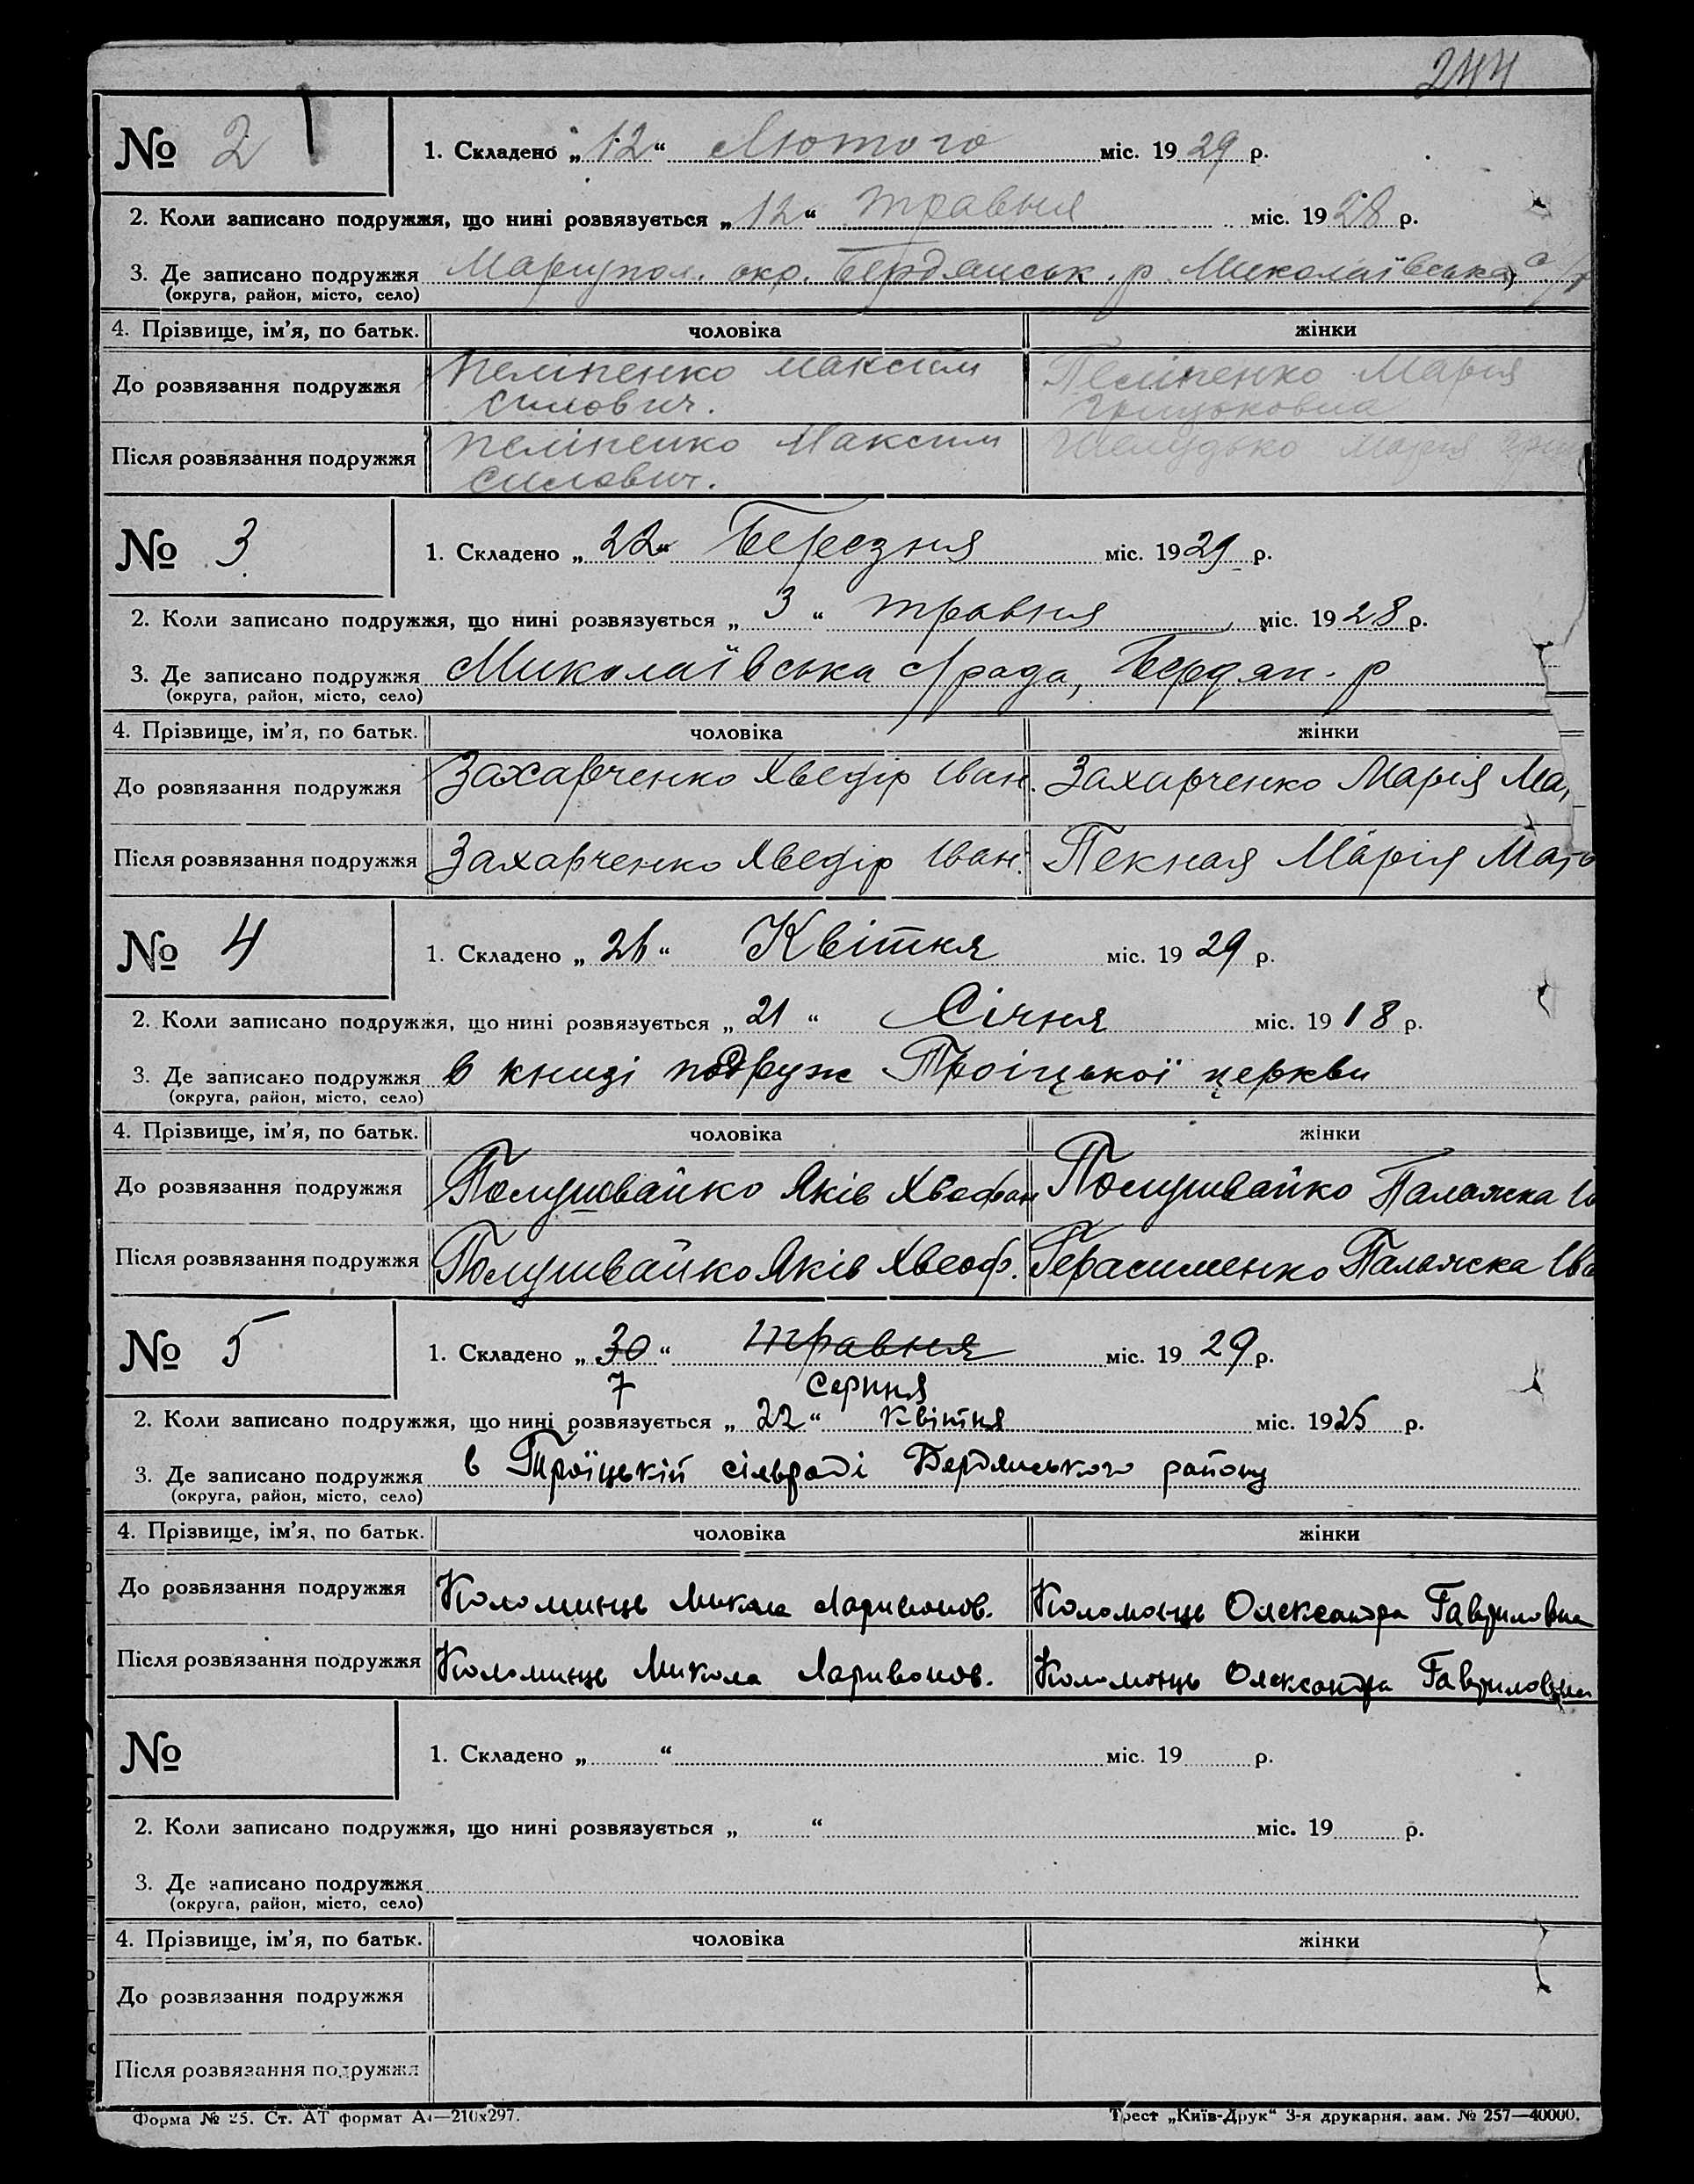 244
№ 2
1. Складено „ 12 “ Лютого міс. 19 29 р.
2. Коли записано подружжя, що нині розвязується „ 12 “ травня міс. 19 28 р.
3. Де записано подружжя Маріупол. окр. Бердянськ. р. Миколаївська с/р
(округа, район, місто, село)
4. Прізвище, ім’я, по батьк. чоловіка жінки
До розвязання подружжя Пеліпенко Максим Силович. Пеліпенко Марія Грицьковна
Після розвязання подружжя Пеліпенко Максим Силович. Шелудько Марія Гри
№ 3
1. Складено „ 22 “ Березня міс. 19 29 р.
2. Коли записано подружжя, що нині розвязується „ 3 “ травня міс. 19 28 р.
3. Де записано подружжя Миколаївська с/рада, Бердян. р
(округа, район, місто, село)
4. Прізвище, ім’я, по батьк. чоловіка жінки
До розвязання подружжя Захарченко Хведір Іван. Захарченко Марія Ма
Після розвязання подружжя Захарченко Хведір Іван. Пекная Марія
№ 4
1. Складено „ “ Квітня міс. 19 29 р.
2. Коли записано подружжя, що нині розвязується „ 21 “ Січня міс. 19 18 р.
3. Де записано подружжя в книзі подруж Троіцької церкви
(округа, район, місто, село)
4. Прізвище, ім’я, по батьк. чоловіка жінки
До розвязання подружжя Полушвайко Яків Хвеофан Полушвайко Палажка Ів
Після розвязання подружжя Полушвайко Яків Хвеоф. Герасименко Палажка Іва
№ 5
1. Складено „ 30 “ травня міс. 19 29 р.
7 Серпня
2. Коли записано подружжя, що нині розвязується „ 22 “ квітня міс. 19 25 р.
3. Де записано подружжя в Троїцькій сільраді Бердянського району
(округа, район, місто, село)
4. Прізвище, ім’я, по батьк. чоловіка жінки
До розвязання подружжя Коломиець Микола Ларивонов. Коломоєць Олександра Гавриловна
Після розвязання подружжя Коломиець Микола Ларивонов. Коломоєць Олександра Гавриловна
№
1. Складено „ “ міс. 19 р.
2. Коли записано подружжя, що нині розвязується „ “ міс. 19 р.
3. Де записано подружжя
(округа, район, місто, село)
4. Прізвище, ім’я, по батьк. чоловіка жінки
До розвязання подружжя
Після розвязання подружжя
Форма № 25. Ст. АТ формат А4—210х297. Трест „Київ-Друк“ 3-я друкарня. зам. № 257—40000.